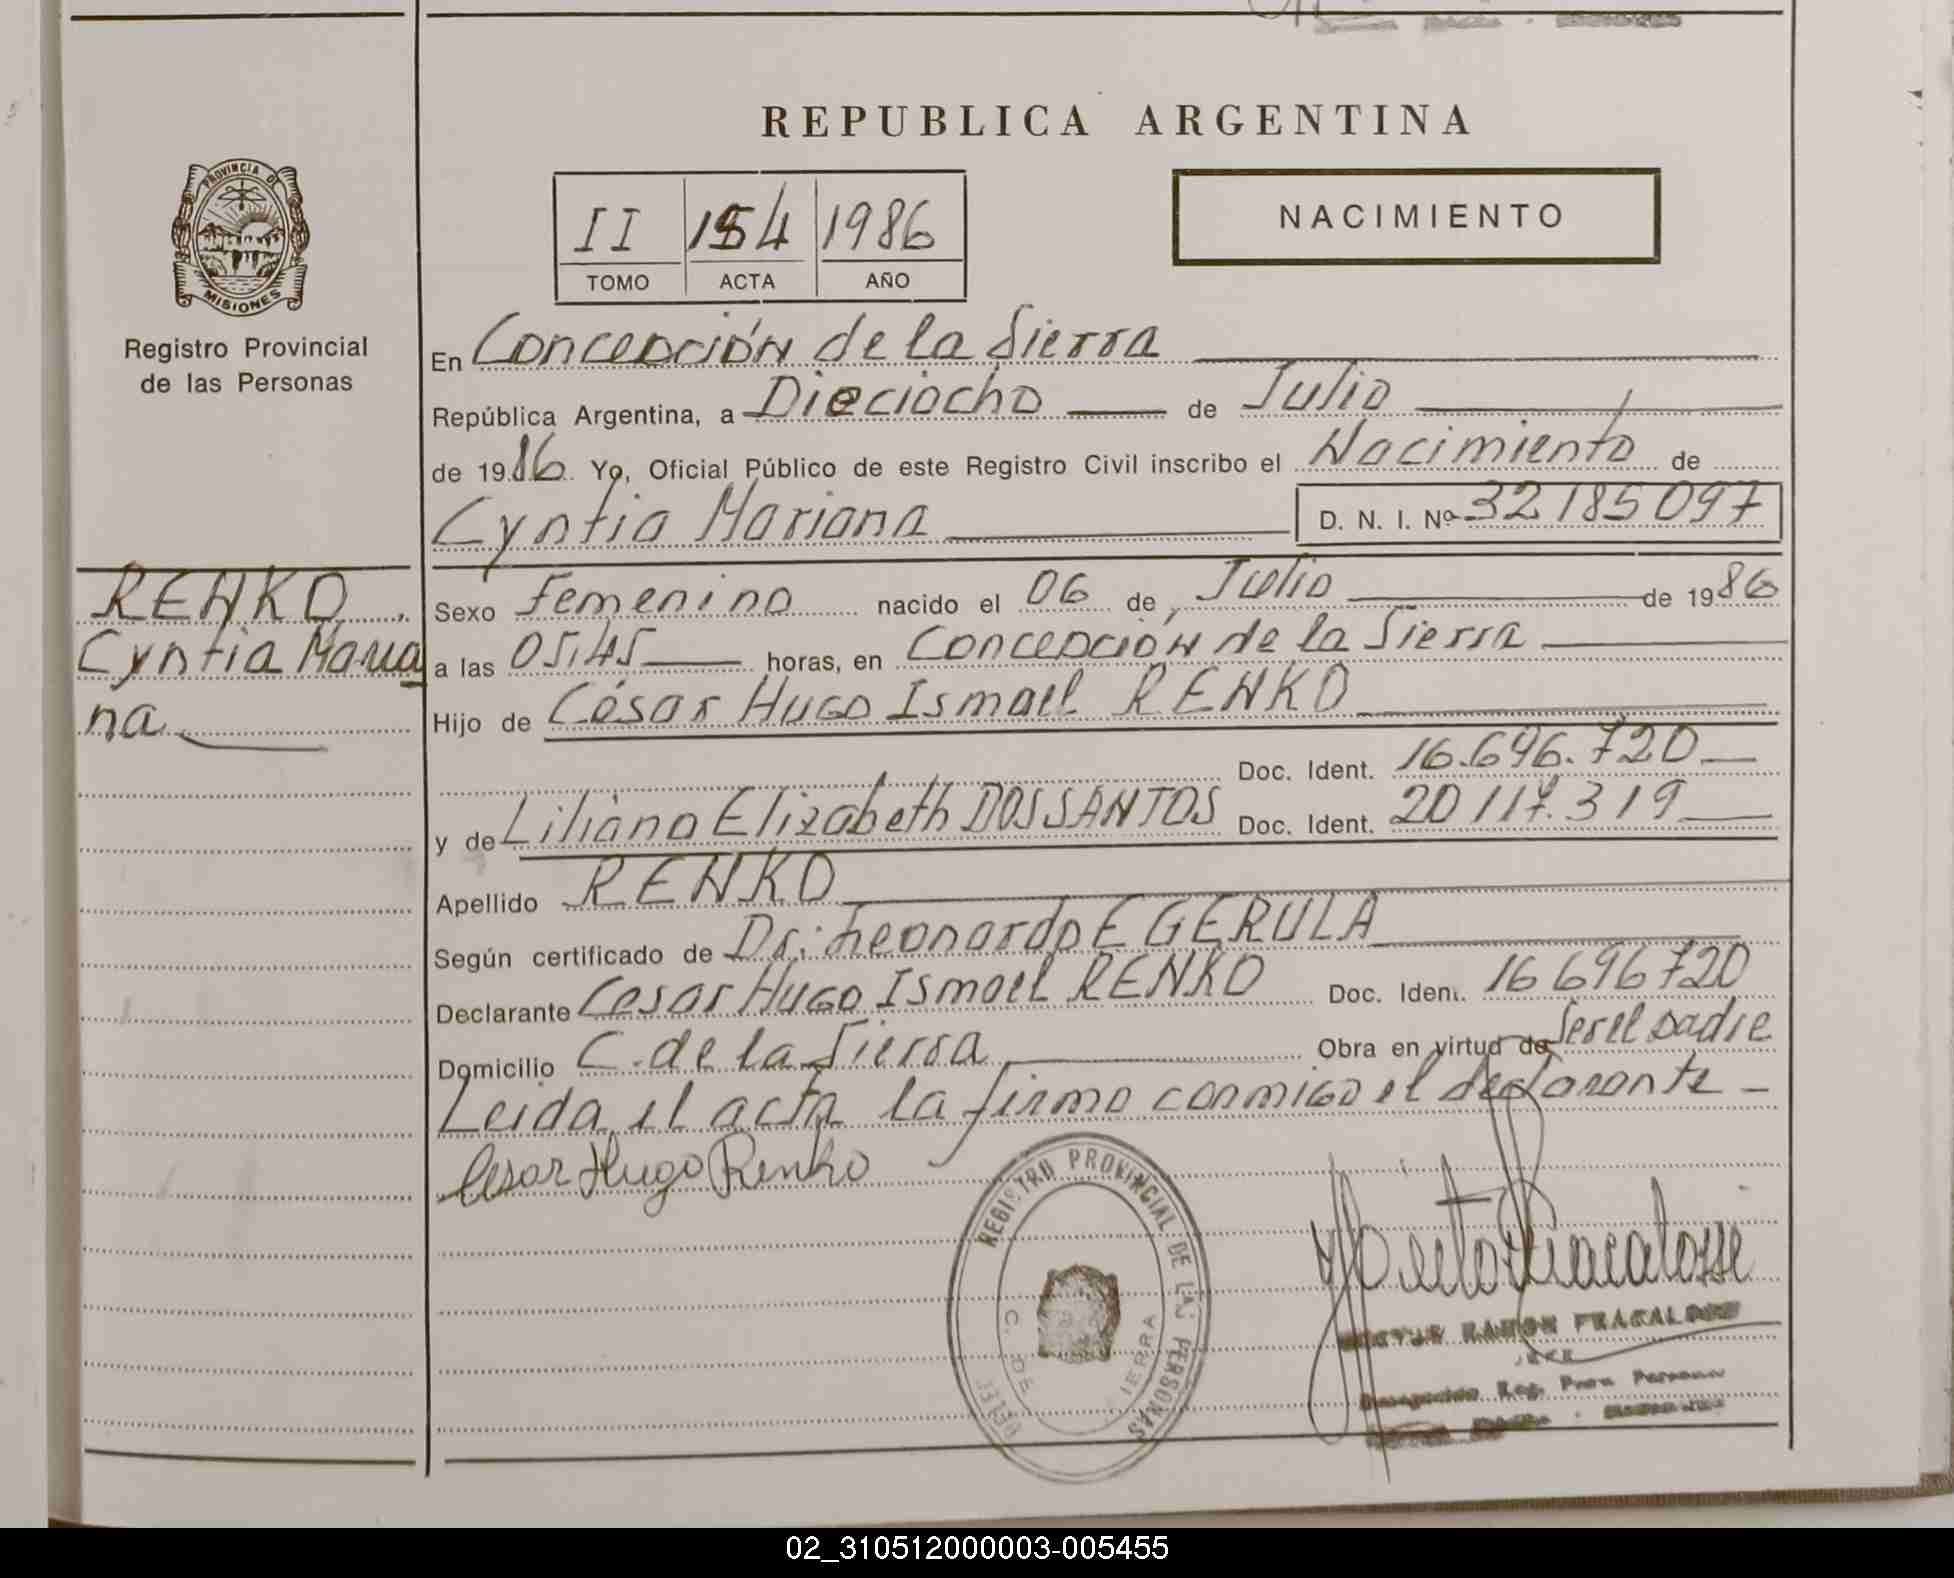 REPUBLICA ARGENTINA
PROVINCIA DE
MISIONES
Registro Provincial
de las Personas
II 154 1986
TOMO ACTA AÑO
NACIMIENTO
En Concepción de la Sierra
República Argentina, a Dieciocho de Julio
de 1986 Yo, Oficial Público de este Registro Civil inscribo el Nacimiento de
Cyntia Mariana D. N. I. Nº 32185097
RENKO
Cyntia Maria
na
Sexo Femenino nacido el 06 de Julio de 1986
a las 05,45 horas, en Concepción de la Sierra
Hijo de César Hugo Ismael RENKO
Doc. Ident. 16.696.720
y de Liliana Elizabeth DOSSANTOS Doc. Ident. 20 117.319
Apellido RENKO
Según certificado de Dr: Leonardo E GERULA
Declarante Cesar Hugo Ismael RENKO Doc. Iden. 16 696 720
Domicilio C. de la Sierra Obra en virtud de Ser el padre
Leida el acta la firmo conmigo el declarante
Cesar Hugo Renko
REGISTRO PROVINCIAL DE LAS PERSONAS
C. DE SIERRA
RAMON FRACALOSSI
JEFE
Reg.
02_310512000003-005455